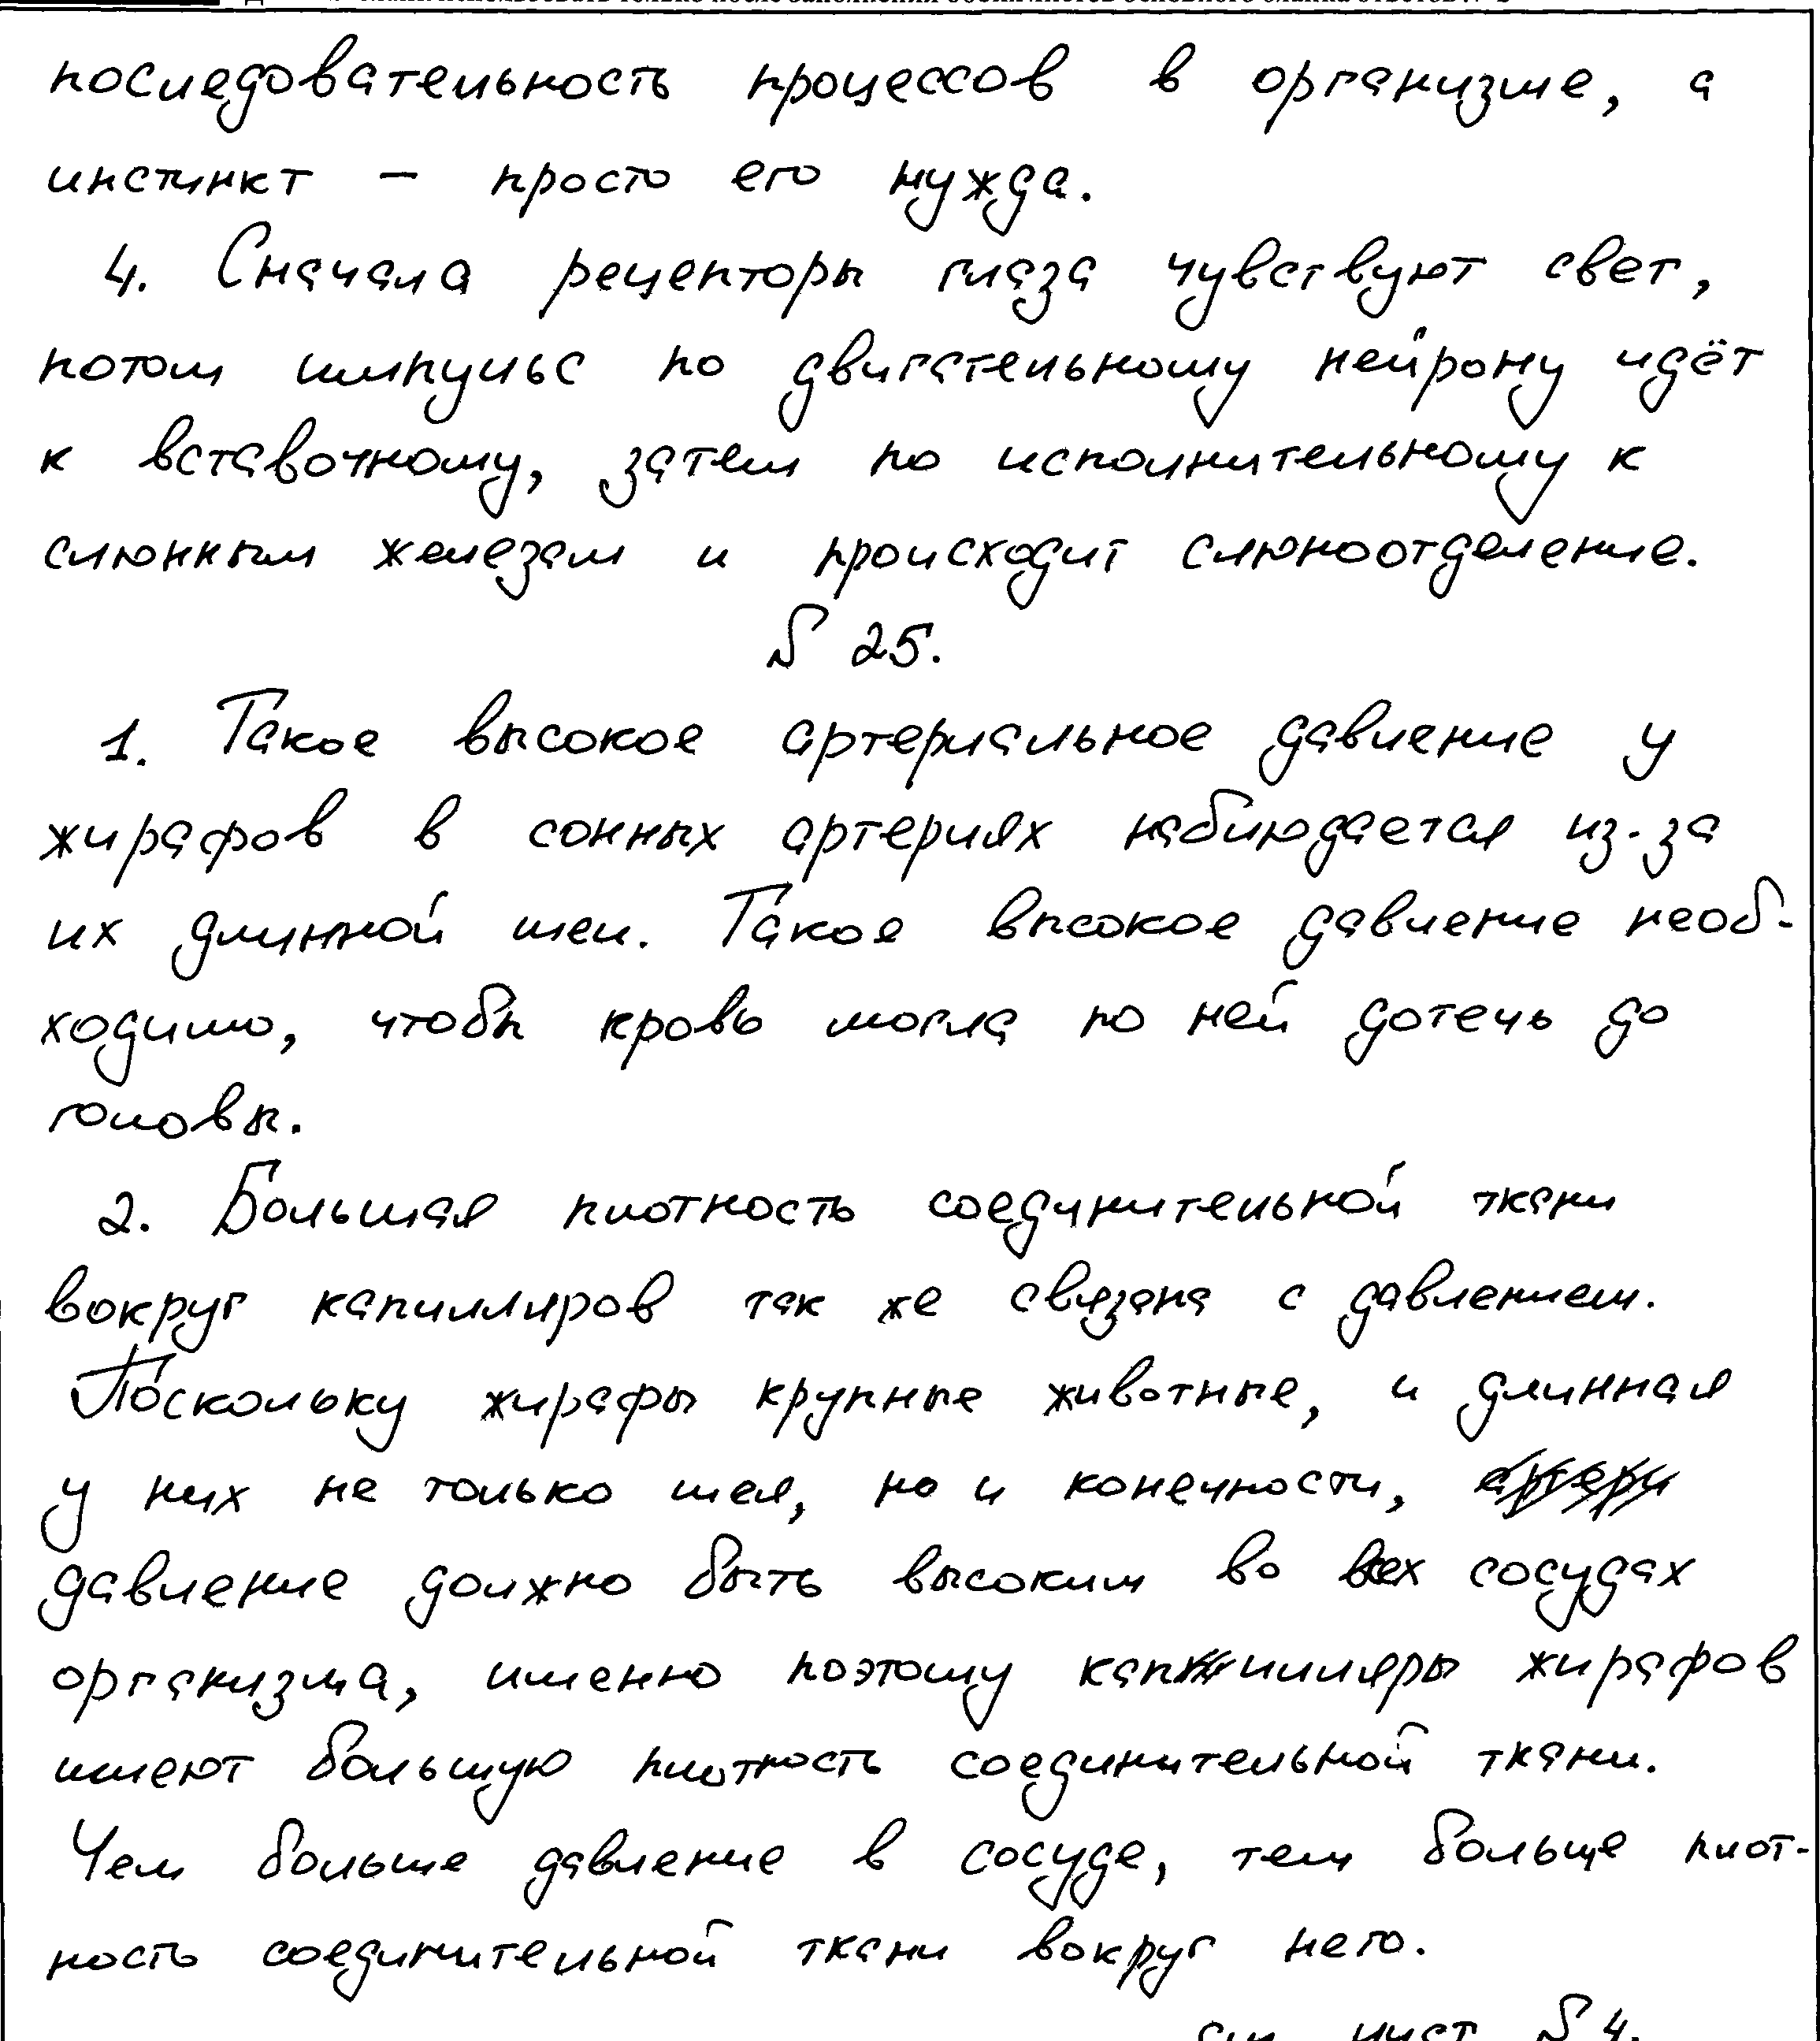 последовательность процессов в организме, а
инстинкт – просто его нужда.
4. Сначала рецепторы глаза чувствуют свет,
потом импульс по двигательному нейрону идёт
к вставочному, затем по исполнительному к
слюнным железам и происходит слюноотделение.
№ 25.
1. Такое высокое артериальное давление у
жирафов в сонных артериях наблюдается из-за
их длинной шеи. Такое высокое давление необ-
ходимо, чтобы кровь могла по ней дотечь до
головы.
2. Большая плотность соединительной ткани
вокруг капилляров так же связана с давлением.
Поскольку жирафы крупные животные, и длинная
у них не только шея, но и конечности,
давление должно быть высоким во всех сосудах
организма, именно поэтому капилляры жирафов
имеют большую плотность соединительной ткани.
Чем больше давление в сосуде, тем больше плот-
ность соединительной ткани вокруг него.
см. лист № 4.